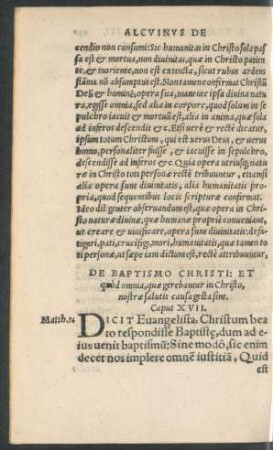 ALCVINVS DE
cendio non consumi: Sic humanitas in Christo sola pas
sa est & mortua, non diuinitas, quæ in Christo patien
te, & moriente, non est extincta, sicut rubus ardens
flāma nō absumptus est. Non tamen confirmat Christū
Deū & hominē, opera sua, manente ipsa diuina natu
ra, egisse omnia, sed alia in corpore, quod solum in se
pulchro iacuit & mortuū est, alia in anima, quæ sola
ad inferos descendit &c. Etsi verè & rectè dicatur,
ipsum totum Christum, qui est verus Deus, & verus
homo, personaliter fuisse, & iacuisse in sepulchro,
descendisse ad inferos &c. Quia opera vtriusq; natu
ræ in Christo toti personæ rectè tribuuntur, etiamsi
alia opera sunt diuinitatis, alia humanitatis pro-
pria, quod sequentibus locis scripturæ confirmat.
Ideo diligenter obseruandum est, quæ opera in Chri-
sto naturæ diuinæ, quæ humanæ propriè conueniant,
vt creare & viuificare, opera sunt diuinitatis: de-
figuri, pati, crucifigi, mori, humanitatis, quæ tamen to
ti personæ, vt sæpe iam dictum est, rectè attribuuntur.
DE BAPTISMO CHRISTI: ET
quòd omnia, quæ gerebantur in Christo,
nostræ salutis causa gesta sint.
Caput XVII.
Matth. 3.
DICIT Euangelista, Christum bea
to respondisse Baptistę, dum ad e-
ius uenit baptismū: Sine modò, sic enim
decet nos implere omnē iustitiā, Quid
est